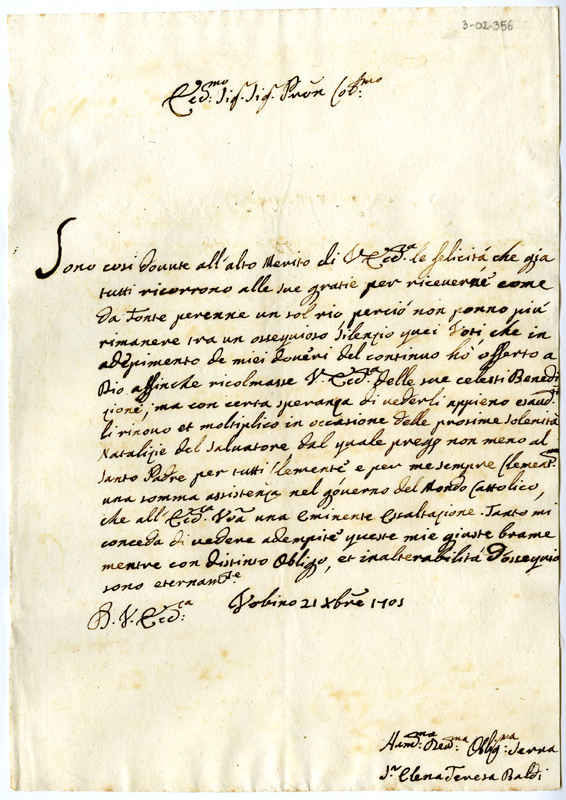 3-02-356
Ecc:mo Sig.r Sig.r Pron Col:mo
Sono così dovute all'alto Merito di V. Ecc:za le felicità che gia
tutti ricorrono alle sue gratie per riceverne come
da fonte perenne un sol rio perciò non ponno più
rimanere tra un ossequioso silenzio quei Voti, che in
adempimento de miei doveri del continuo hò offerto a
Dio affinche ricolmasse V. Ecc:za delle sue celesti Benedi
zioni, ma con certa speranza di vederli appieno esaud:i
li rinovo et moltiplico in occasione delle prosime solenità
Natalizie del Salvatore dal quale prego non meno al
santo Padre per tutti Clemente e per me sempre Clement:mo
una somma assistenza nel governo del Mondo Cattolico,
che all'Ecc:za Vra una Eminente Essaltazione. Tanto mi
conceda di vedere adempite queste mie giuste brame
mentre con distinto Obligo, et inalterabilità d'ossequio
sono eternam:te
D. V. Ecc:za Vrbino 21 Xbre 1701
Hum:ma Deu:ma Oblig:ma Serua
S.r Elena Teresa Baldi